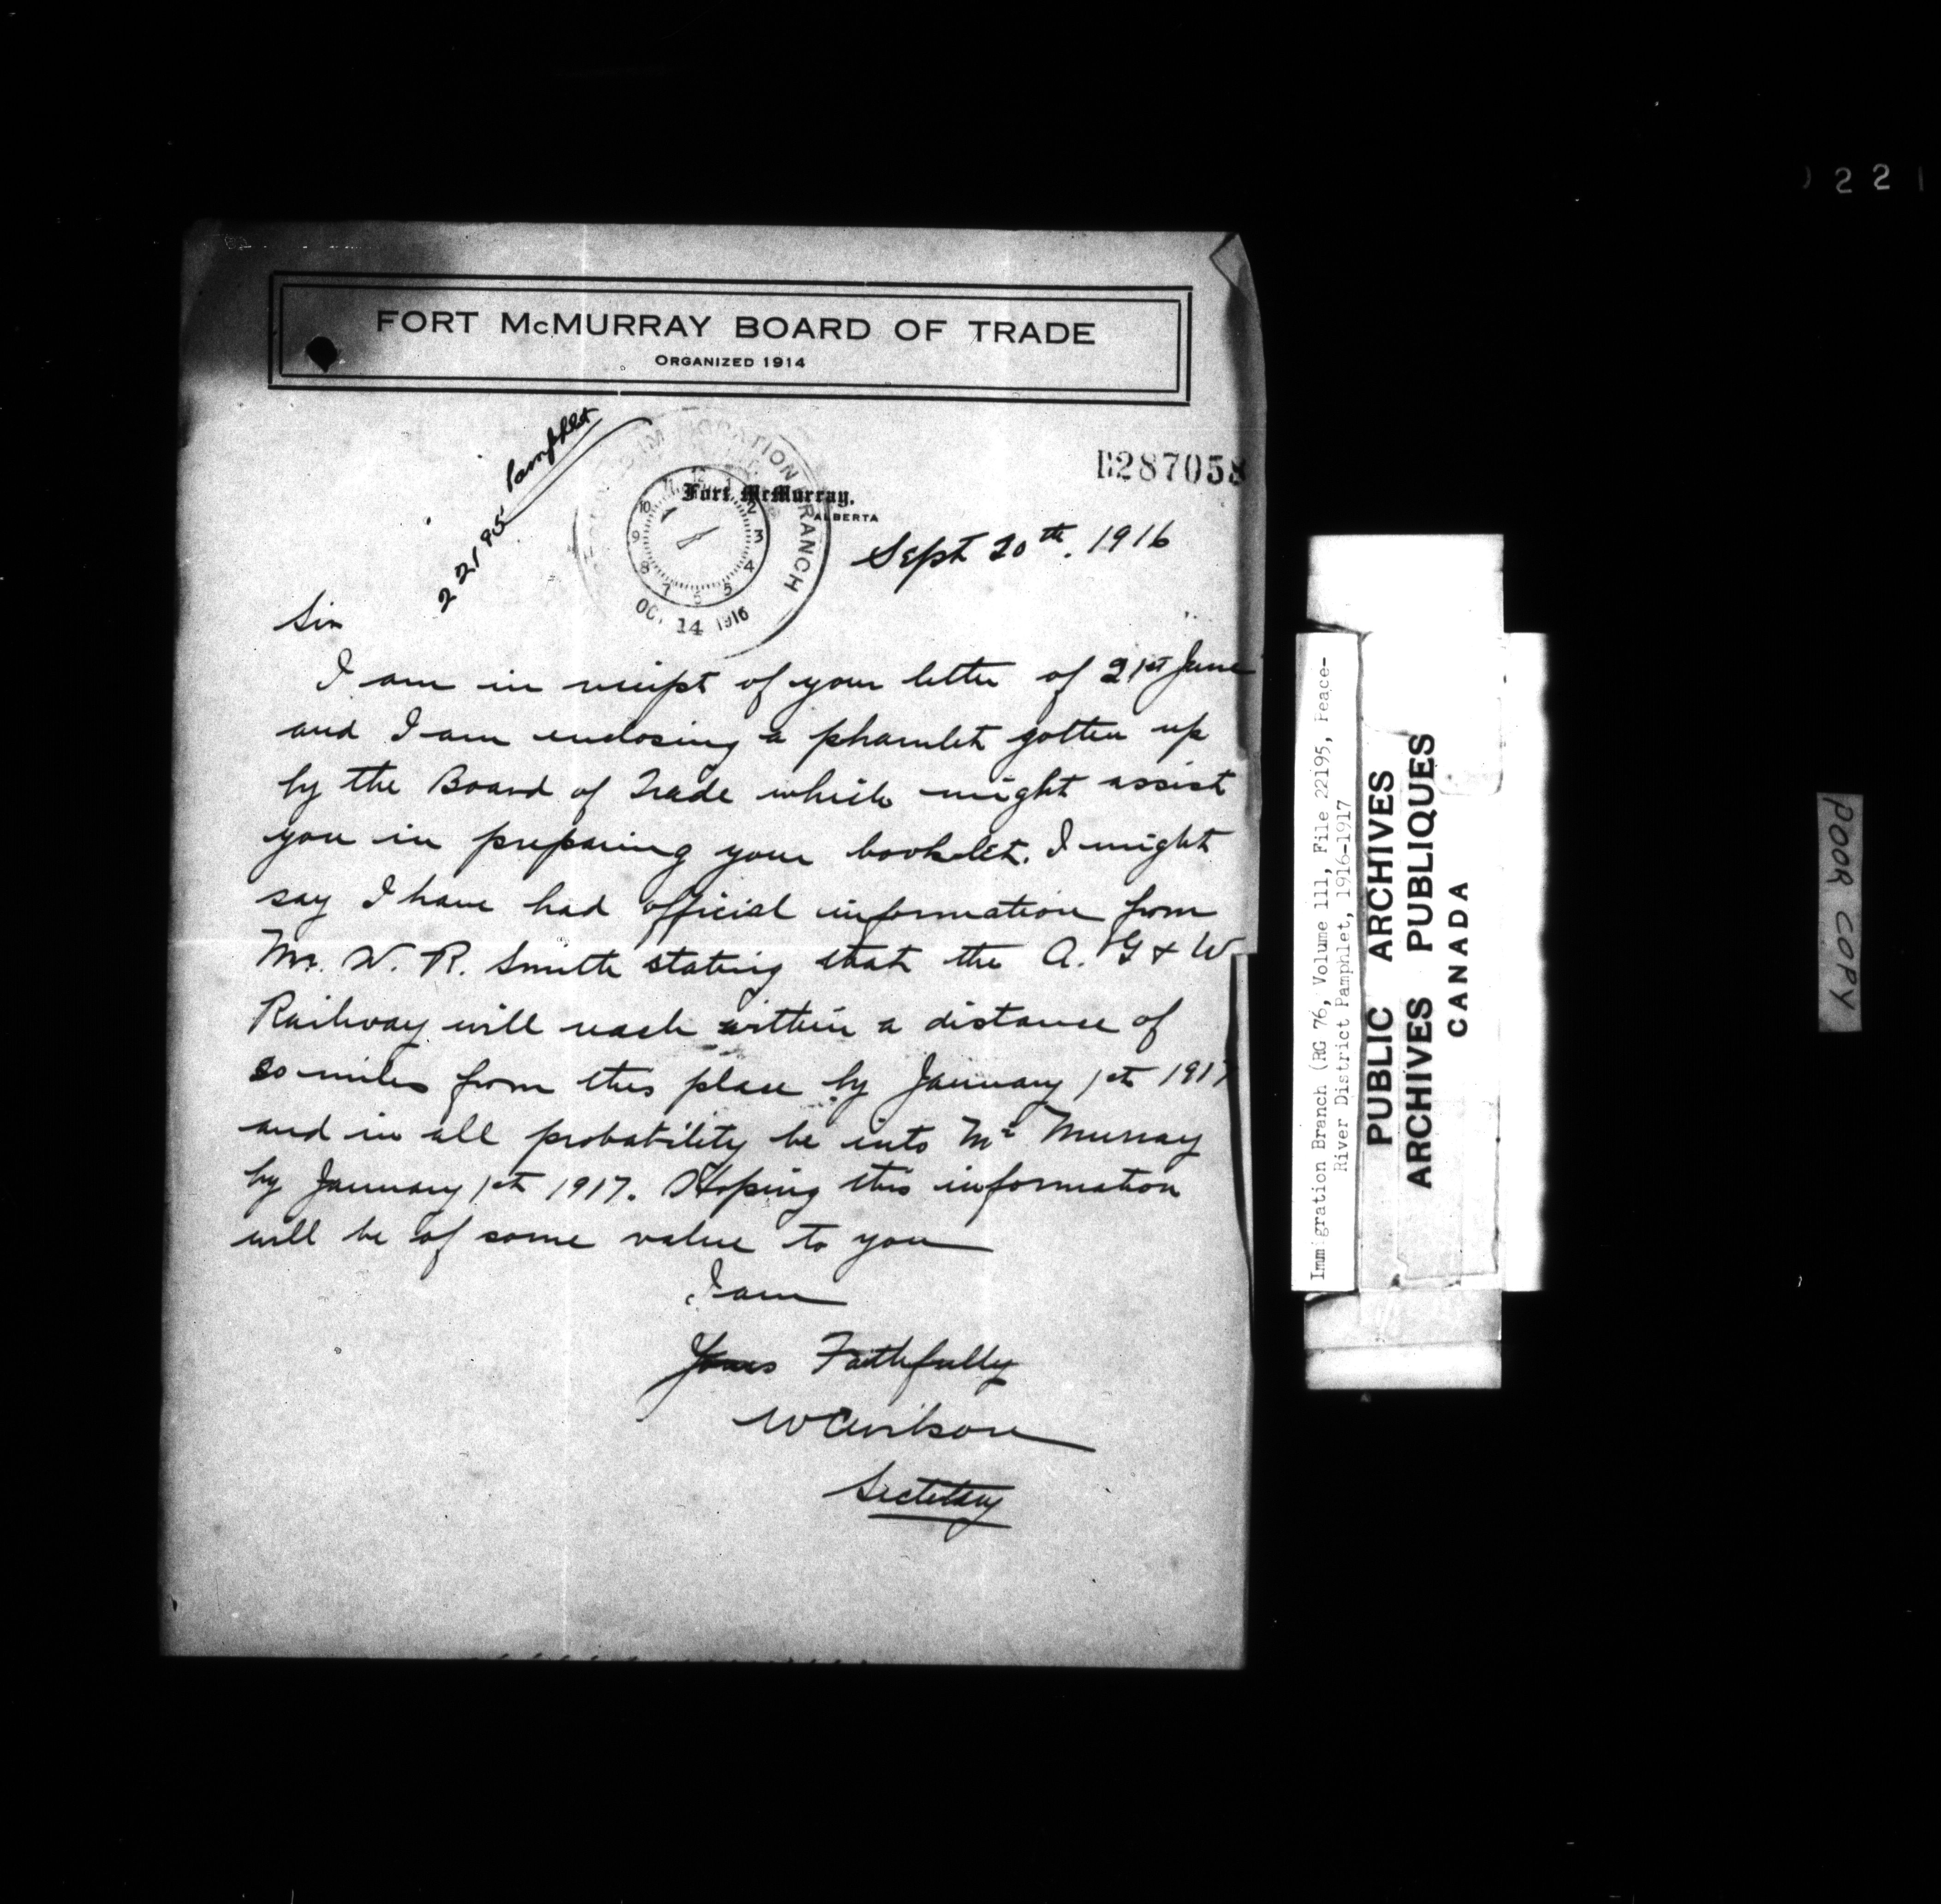 FORT McMURRAY BOARD OF TRADE
ORGANIZED 1914
22195 Pamphlet
IMMIGRATION BRANCH
OCT 14 1916
D287058
Fort McMurray,
ALBERTA
Sept 20th. 1916
Sir
I am in reciept of your letter of 21st June
and I am enclosing a phamlet gotten up
by the Board of Trade which might assist
you in preparing your booklet. I might
say I have had official information from
Mr. W. R. Smith stating that the A. G & W
Railway will reach within a distance of
20 miles from this place by January 1st 1917
and in all probability be into Mc Murray
by January 1st 1917. Hoping this information
will be of some value to you
I am
Yours Faithfully
Secretary
Immigration Branch (RG 76, Volume 111, File 22195, Peace-
River District Pamphlet, 1916-1917
PUBLIC ARCHIVES
ARCHIVES PUBLIQUES
CANADA
POOR COPY